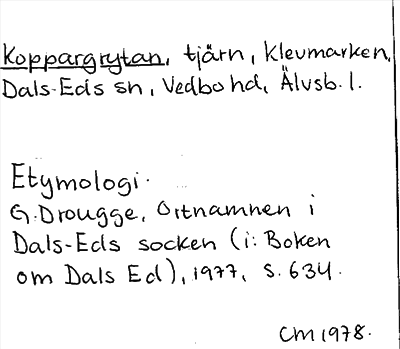 Koppargrytan, tjärn, Klevmarken,
Dals-Eds sn, Vedbo hd, Älvsb. l.
Etymologi.
G. Drougge, Ortnamnen i
Dals-Eds socken (i: Boken
om Dals Ed), 1977, s. 634.
CM 1978.